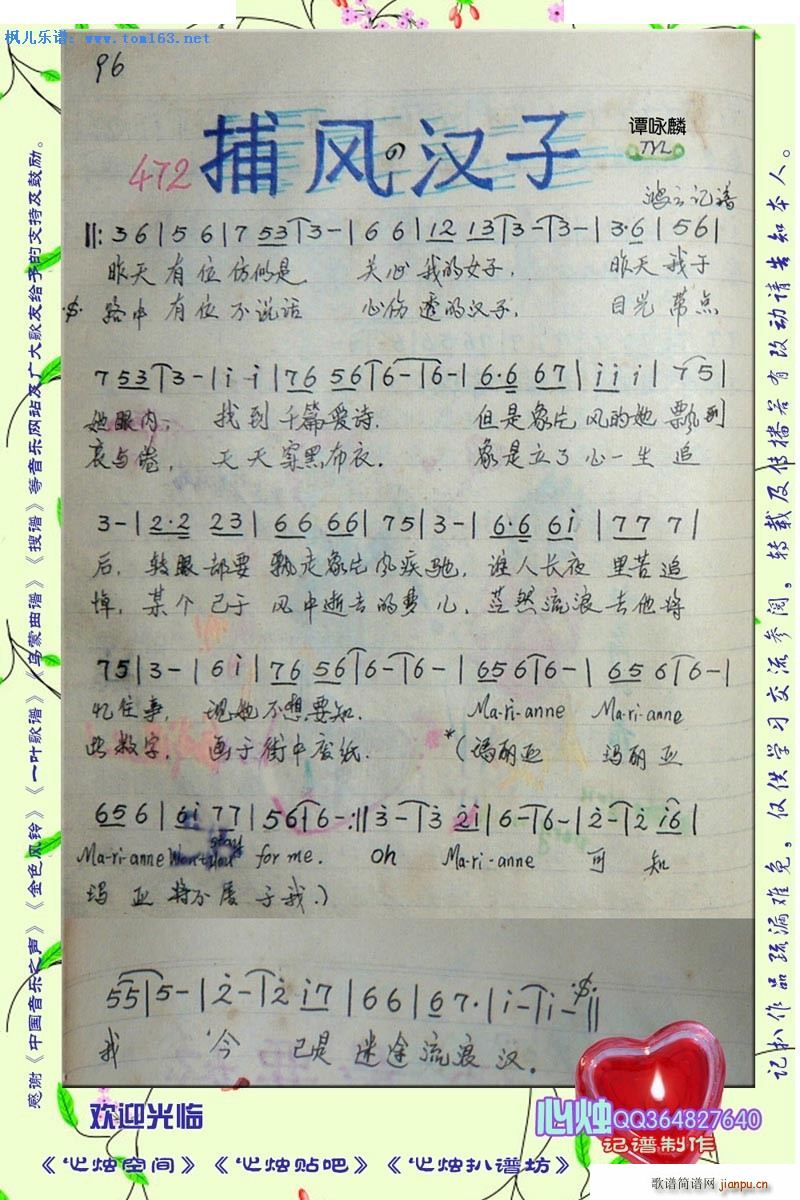 枫儿乐谱: www.tom163.net
96
472 捕风の汉子
谭咏麟
TYL
鸿云记谱
‖: 3 6 | 5 6 | 7 53 | 3 - | 6 6 | 12 13 | 3 - | 3 - | 3·6 | 5 6 |
昨天 有位 仿似是 关心 我的女子. 昨天 我于
路中 有位 不说话 心伤 透的汉子. 目光 带点
7 53 | 3 - | i i | 76 56 | 6 - | 6 - | 6·6 67 | i i i | 7 5 |
她眼内, 找到 千篇爱诗. 但是象片 风的她 飘到
哀与倦, 天天 穿黑布衣. 象是立了 心一生 追
3 - | 2·2 23 | 66 66 | 75 | 3 - | 6·6 6i | 77 7 |
后, 转眼都要 飘走象片 风疾驰, 谁人长夜 里苦追
悼, 某个已于 风中逝去的梦儿, 茫然流浪 去他将
75 | 3 - | 6 i | 76 56 | 6 - | 6 - | 65 6 | 6 - | 65 6 | 6 - |
忆往事, 现她不想要知. Ma-ri-anne Ma-ri-anne
些数字, 画于街中废纸. *(玛丽亚 玛丽亚
65 6 | 6i 77 | 56 | 6 - :‖ 3 - | 3 2i | 6 - | 6 - | 2 - | 2 i6 |
Ma-ri-anne Won't you stay for me. Oh Ma-ri-anne 可 知
玛 亚 将不属 于我.)
55 | 5 - | 2 - | 2 i7 | 6 6 | 6 7· | i - | i - ‖
我 今 已是 迷途 流浪 汉.
感谢《中国音乐之声》《金色风铃》《一叶歌谱》《乌蒙曲谱》《搜谱》等音乐网站及广大歌友给予的支持及鼓励。
记扒作品疏漏难免,仅供学习交流参阅,转载及传播若有改动请告知本人。
欢迎光临
心烛QQ364827640
记谱制作
《心烛空间》《心烛贴吧》《心烛扒谱坊》
歌谱简谱网
www.jianpu.cn